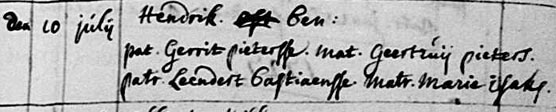 den 10 julij Hendrik. ben:
pat. Gerrit pietersse. mat. Geertruij pieters.
patr. Leendert Bastiaensse. matr. Marie Isaks.